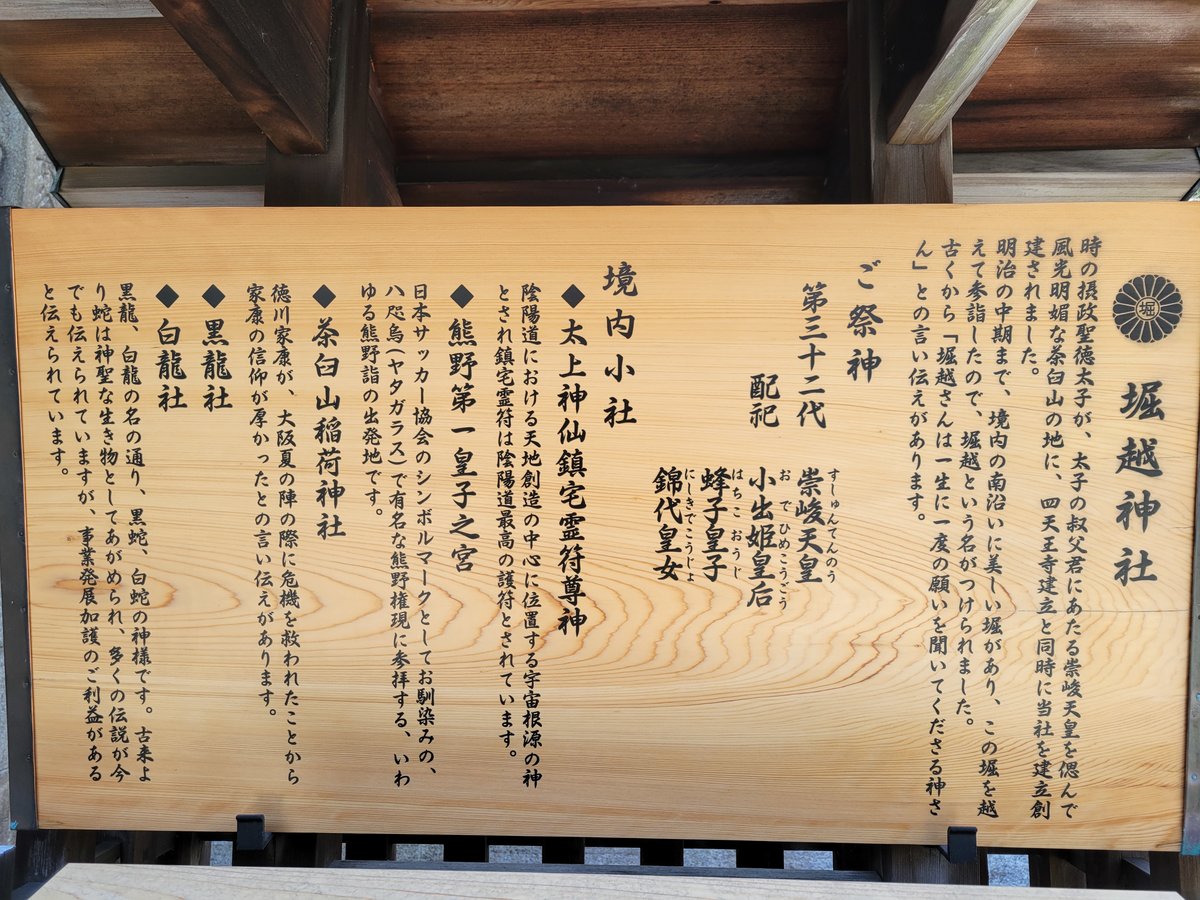 堀
堀越神社
時の摂政聖徳太子が、太子の叔父君にあたる崇峻天皇を偲んで
風光明媚な茶臼山の地に、四天王寺建立と同時に当社を建立創
建されました。
明治の中期まで、境内の南沿いに美しい堀があり、この堀を越
えて参詣したので、堀越という名がつけられました。
古くから「堀越さんは一生に一度の願いを聞いてくださる神さ
ん」との言い伝えがあります。
ご祭神
第三十二代 崇峻天皇 すしゅんてんのう
配祀 小出姫皇后 おでひめこうごう
蜂子皇子 はちこおうじ
錦代皇女 にしきてこうじょ
境内小社
◆太上神仙鎮宅霊符尊神
陰陽道における天地創造の中心に位置する宇宙根源の神
とされ鎮宅霊符は陰陽道最高の護符とされています。
◆熊野第一皇子之宮
日本サッカー協会のシンボルマークとしてお馴染みの、
八咫烏(ヤタガラス)で有名な熊野権現に参拝する、いわ
ゆる熊野詣の出発地です。
◆茶臼山稲荷神社
徳川家康が、大阪夏の陣の際に危機を救われたことから
家康の信仰が厚かったとの言い伝えがあります。
◆黒龍社
◆白龍社
黒龍、白龍の名の通り、黒蛇、白蛇の神様です。古来よ
り蛇は神聖な生き物としてあがめられ、多くの伝説が今
でも伝えられていますが、事業発展加護のご利益がある
と伝えられています。